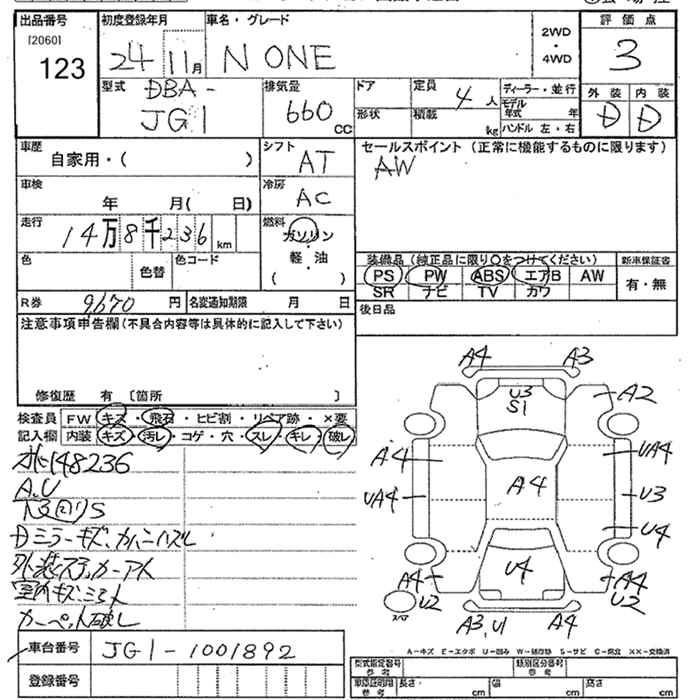 出品番号
[2060]
123
初度登録年月
24 11月
車名・グレード
N ONE
2WD
・
4WD
評価点
3
外装 内装
D D
型式
DBA-
JG1
排気量
660 CC
ドア
形状
定員
4人
積載
kg
ディーラー・並行
モデル年式 年
ハンドル 左・右
車歴
自家用・( )
シフト
AT
車検
年 月( 日)
冷房
AC
走行
14万8千236km
燃料
ガソリン
・
軽・油
( )
色
色替
色コード
R券 9670円
名変通知期限 月 日
セールスポイント(正常に機能するものに限ります)
AW
装備品(純正品に限り○をつけてください)
PS PW ABS エアB AW
SR ナビ TV カワ
新車保証書
有・無
後日品
注意事項申告欄(不具合内容等は具体的に記入して下さい)
修復歴 有〔箇所 〕
検査員
記入欄
FW キズ・飛石・ヒビ割・リペア跡・×要
内装 キズ・汚レ・コゲ・穴・スレ・キレ・破レ
148236
A,U
下回りS
Dミラーキズ、カバーハズレ
外装ステッカーアト
室内キズ・ヨゴレ
カーペット破レ
A4 A3
U3
S1
A2
A4
UA4
UA4
A4
U3
U4
U4
A4
U2
A4
U2
スペア
A3,U1 A4
車台番号 JG1-1001892
登録番号
A-キズ E-エクボ U-凹み W-補修跡 S-サビ C-腐食 XX-交換済
型式指定番号
参考
類別区分番号
参考
車体証明用
参考
長さ・ cm
幅 cm
高さ cm